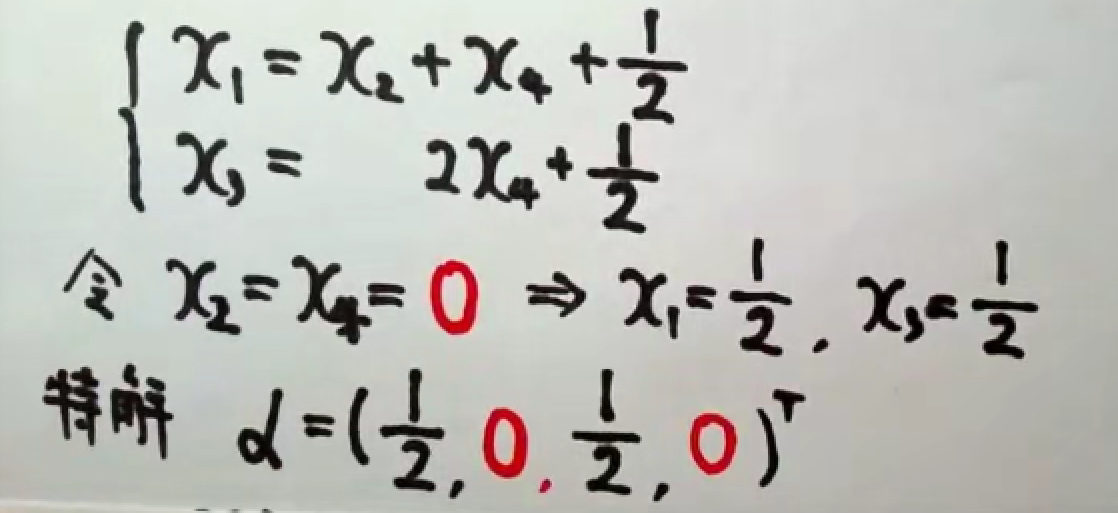 x₁ = x₂ + x₄ + 1/2
x₃ = 2x₄ + 1/2
令 x₂ = x₄ = 0 ⇒ x₁ = 1/2, x₃ = 1/2
特解 α = (1/2, 0, 1/2, 0)ᵀ